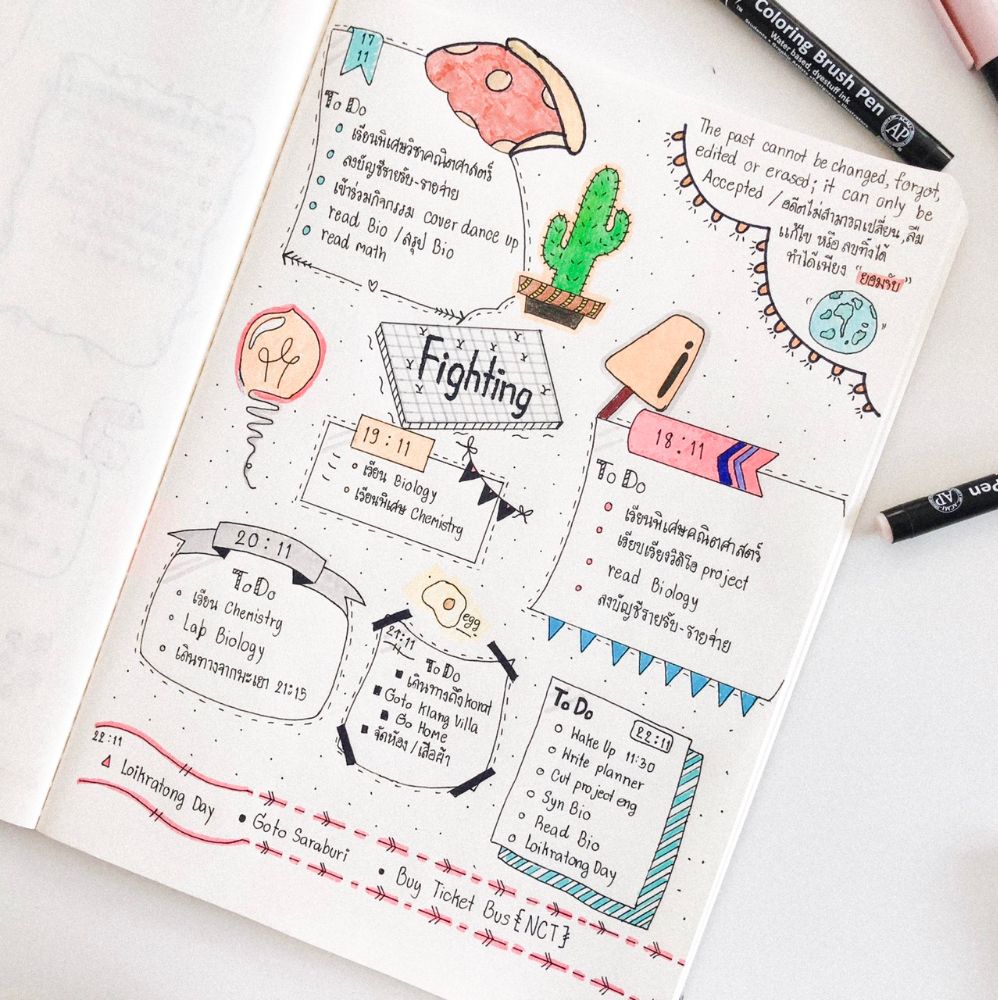 Coloring Brush Pen
Water based, dyestuff ink
AP
17
11
To Do
เรียนพิเศษวิชาคณิตศาสตร์
ลงบัญชีรายรับ-รายจ่าย
เข้าร่วมกิจกรรม cover dance up
read Bio / สรุป Bio
read math
The past cannot be changed, forgot,
edited or erased; it can only be
Accepted / อดีตไม่สามารถเปลี่ยน, ลืม
แก้ไข หรือ ลบทิ้งได้
ทำได้เพียง "ยอมรับ"
Fighting
i
19:11
เรียน Biology
เรียนพิเศษ Chemistry
18:11
To Do
เรียนพิเศษคณิตศาสตร์
เรียบเรียงวิดิโอ project
read Biology
ลงบัญชีรายรับ-รายจ่าย
Pen
AP
20:11
To Do
เรียน Chemistry
Lab Biology
เดินทางจากพะเยา 21:15
egg
21:11
To Do
เดินทางถึง korat
Goto Klang Villa
Go Home
จัดห้อง / เสื้อผ้า
To Do
22:11
Wake Up 11:30
Write planner
Cut project eng
Syn Bio
Read Bio
Loikratong Day
22:11
Loikratong Day
Goto Saraburi
Buy Ticket Bus {NCT}